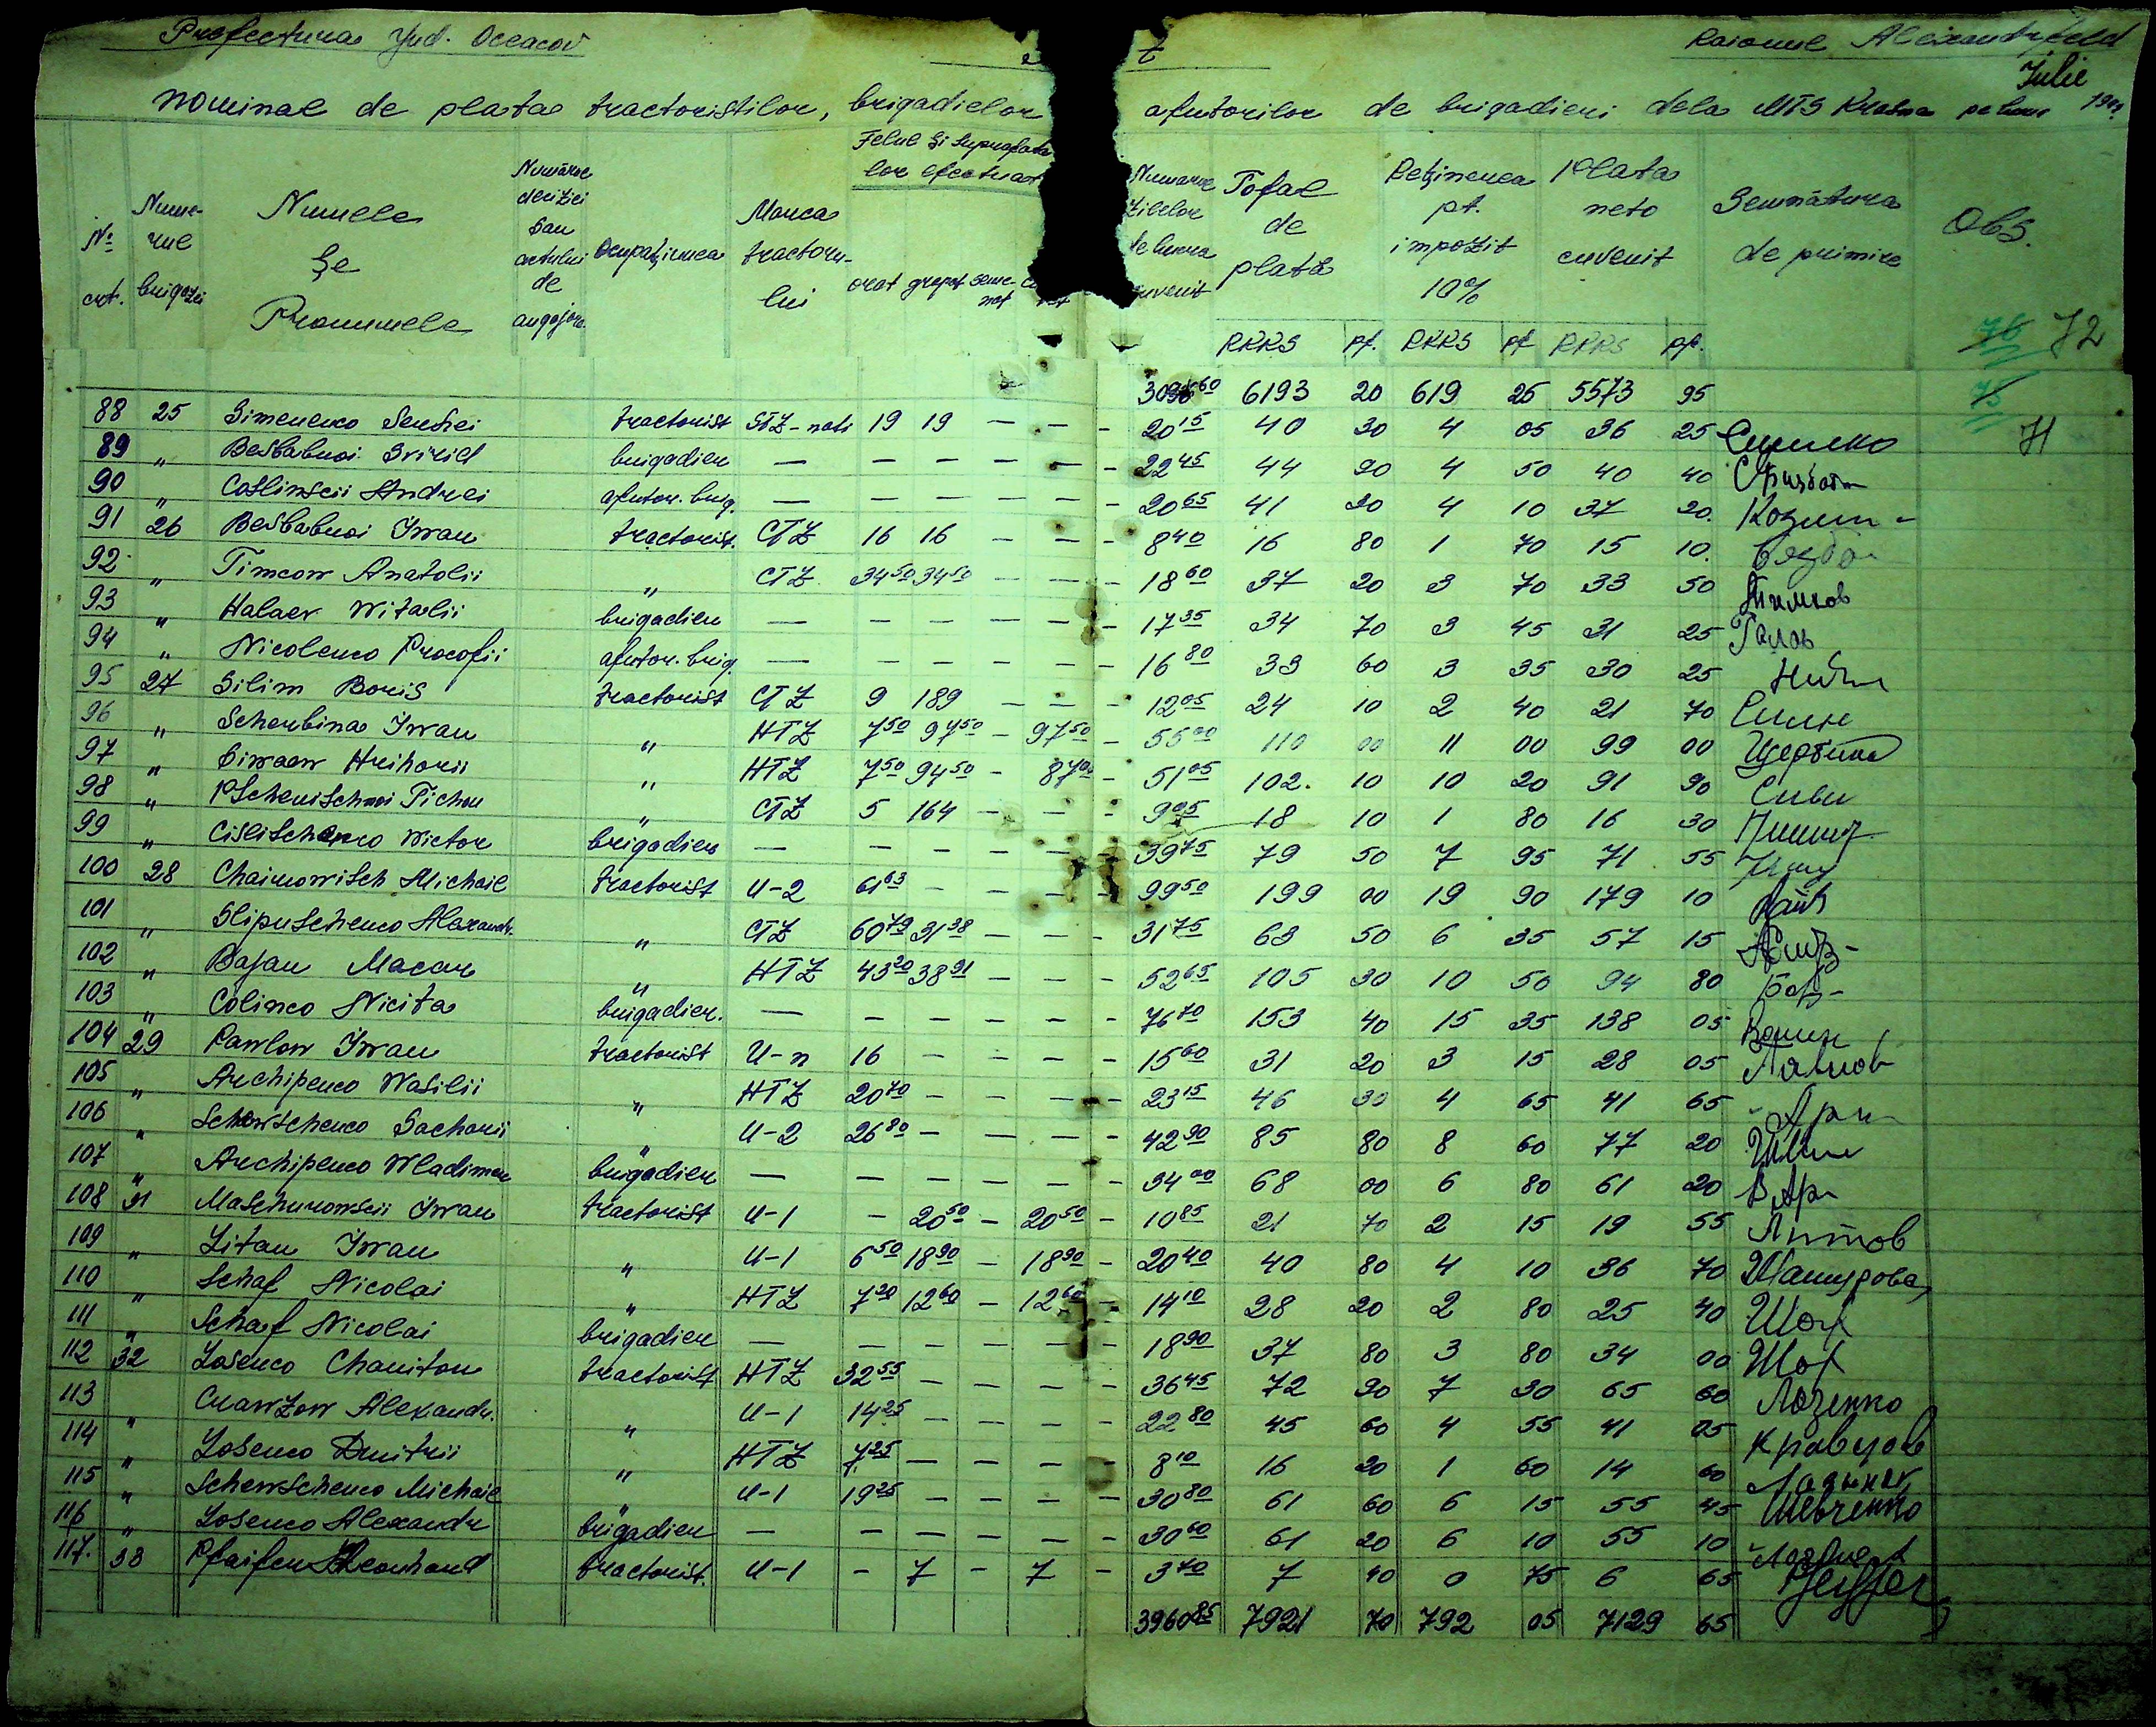 Prefectura Jud. Oceacov Raionul Alexandrfeld
Julie
nominal de plata tractoristilor, brigadielor ajutorilor de brigadieri dela MTS Krasna pe luna
No crt. Nume-rul brigazii Numele Şe Pronumele Numărul deciziei sau actului de angajare Ocupaţiunea Marca tractoru-lui Felul şi suprafata lor efectuat arat grapat seme-nat Numărul zilelor de lucru cuvenit Total de plată Reţinerea pt. impozit 10% Plata neto cuvenit Semnătura de primire Obs.
RKKS pf. RKKS pf RKKS pf.
76 72
6193 20 619 25 5573 95
75
88 25 Simenenco Serghei tractorist STZ-nati 19 19 — — — 20 15 40 30 4 05 36 25 71
89 " Besbabnoi Svirid brigadier — — — — — — 22 45 44 90 4 50 40 40
90 " Coslinscii Andrei ajutor. brig. — — — — — — 20 65 41 30 4 10 37 20
91 26 Besbabnoi Iwan tractorist. CTZ 16 16 — — — 8 40 16 80 1 70 15 10
92 " Timcow Anatolii " CTZ 34 50 34 50 — — — 18 60 37 20 3 70 33 50 Тимков
93 " Halaev Witalii brigadier — — — — — — 17 35 34 70 3 45 31 25
94 " Nicolenco Procofii ajutor. brig. — — — — — — 16 80 33 60 3 35 30 25
95 27 Silim Boris tractorist CTZ 9 189 — — — 12 05 24 10 2 40 21 70
96 " Scherbina Iwan " HTZ 7 50 97 50 — 97 50 — 55 00 110 00 11 00 99 00 Щербина
97 " Siwaew Hrihorii " HTZ 7 50 94 50 — 87 00 — 51 05 102. 10 10 20 91 90
98 " Pschenischnoi Tichon " CTZ 5 164 — — — 9 05 18 10 1 80 16 30
99 " Cislischenco Wictor brigadier — — — — — — 39 75 79 50 7 95 71 55
100 28 Chaimowisch Michail tractorist U-2 61 63 — — — — 99 50 199 00 19 90 179 10
101 " Slipuschenco Alexandr. " CTZ 60 79 31 38 — — — 31 75 63 50 6 35 57 15
102 " Bajan Macar " HTZ 43 20 38 91 — — — 52 65 105 30 10 50 94 80
103 " Colinco Nicita brigadier. — — — — — — 76 70 153 40 15 35 138 05
104 29 Pawlow Iwan tractorist U-n 16 — — — — 15 60 31 20 3 15 28 05 Павлов
105 " Archipenco Wasilii " HTZ 20 70 — — — — 23 15 46 30 4 65 41 65
106 " Schewtschenco Sacharii " U-2 26 80 — — — — 42 90 85 80 8 60 77 20
107 " Archipenco Wladimer brigadier — — — — — — 34 00 68 00 6 80 61 20
108 31 Maschurowscii Iwan tractorist U-1 — 20 50 — 20 50 — 10 85 21 70 2 15 19 55
109 " Litau Iwan " U-1 6 50 18 90 — 18 90 — 20 40 40 80 4 10 36 70
110 " Schaf Nicolai " HTZ 7 20 12 60 — 12 60 — 14 10 28 20 2 80 25 40 Шаф
111 " Schaf Nicolai brigadier — — — — — — 18 90 37 80 3 80 34 00 Шаф
112 32 Losenco Chariton tractorist HTZ 32 55 — — — — 36 45 72 90 7 30 65 60 Лозенко
113 " Crawzow Alexandr. " U-1 14 25 — — — — 22 80 45 60 4 55 41 05 Кравцов
114 " Losenco Dmitrii " HTZ 7 25 — — — — 8 10 16 20 1 60 14 60
115 " Schewschenco Michail " U-1 19 25 — — — — 30 80 61 60 6 15 55 45 Шевченко
116 " Losenco Alexandr brigadier — — — — — — 30 60 61 20 6 10 55 10
117. 38 Pfaifer Leonhard tractorist. U-1 — 7 — 7 — 3 70 7 40 0 75 6 65 Pfeiffer
3960 85 7921 70 792 05 7129 65